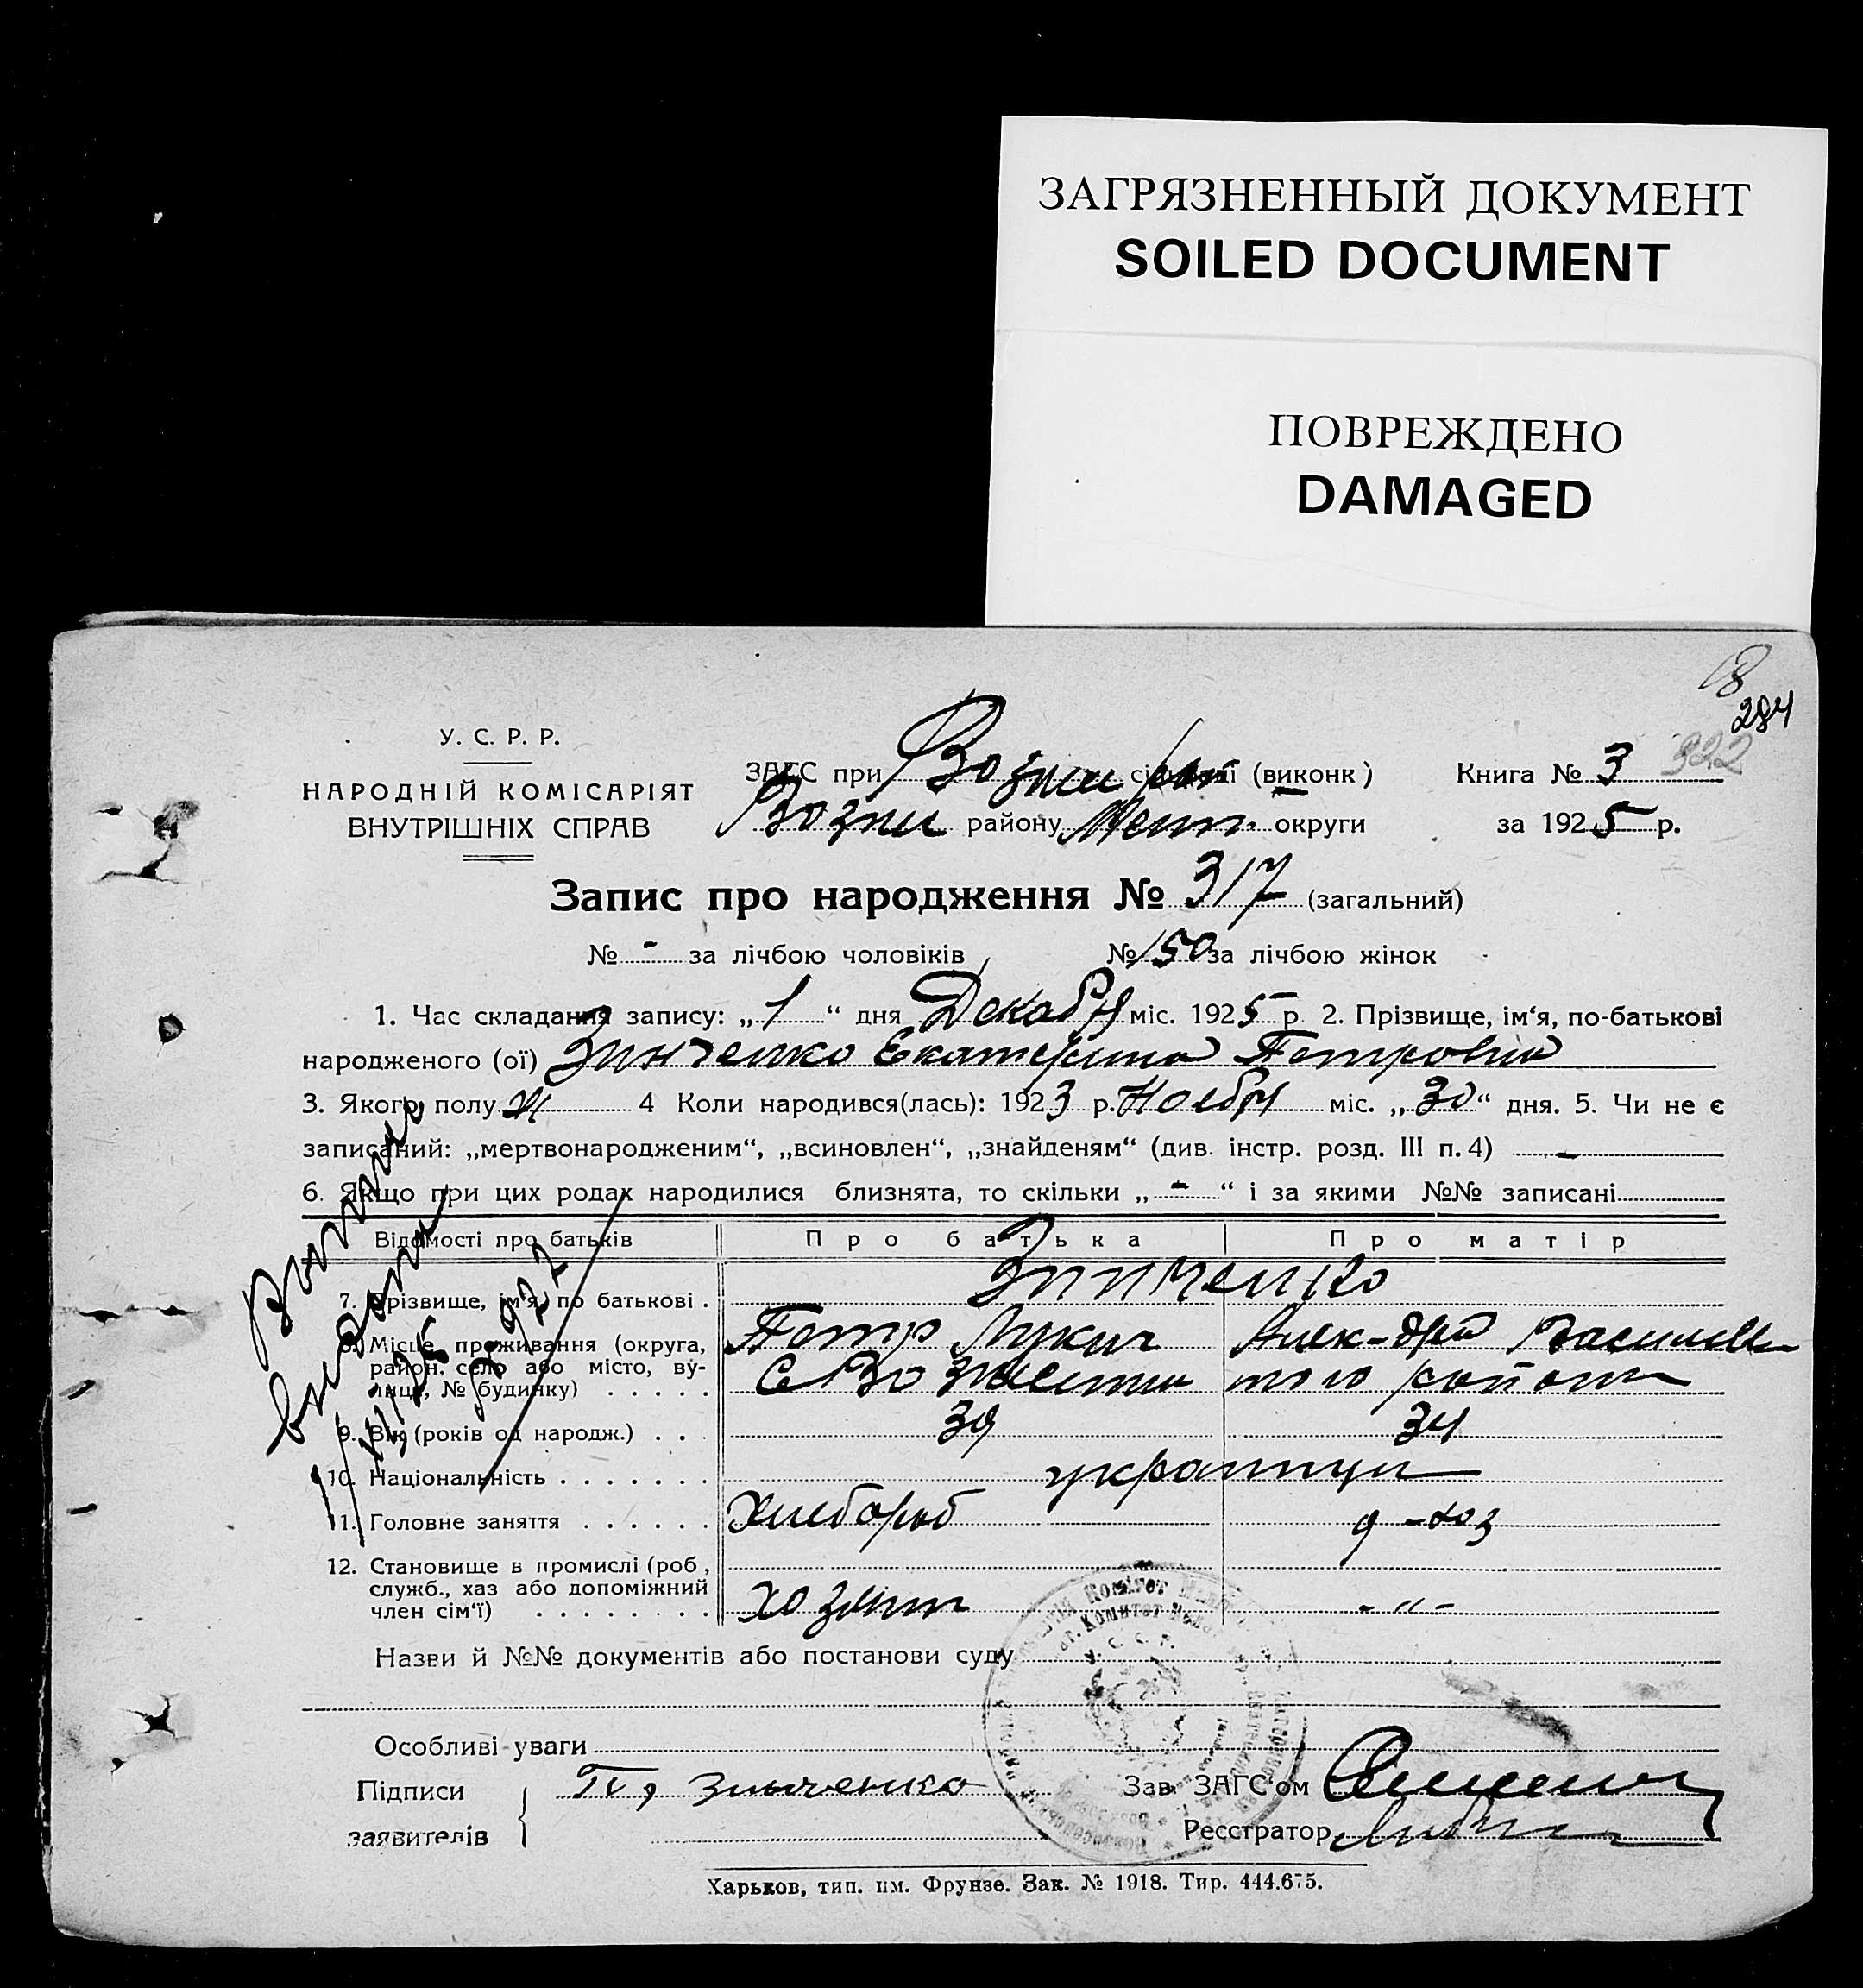 ЗАГРЯЗНЕННЫЙ ДОКУМЕНТ
SOILED DOCUMENT
ПОВРЕЖДЕНО
DAMAGED
284
322
У. С. Р. Р.
НАРОДНІЙ КОМІСАРІЯТ
ВНУТРІШНІХ СПРАВ
ЗАГС при (виконк)
районy округи
Книга № 3
за 1925 р.
Запис про народження № 317 (загальний)
№ - за лічбою чоловіків № 150 за лічбою жінок
1. Час складання запису: „1“ дня Декабря міс. 1925 р. 2. Прізвище, ім‘я, по-батькові
народженого (ої) Зинченко Екатерина Петровна
3. Якого полу ж 4 Коли народився(лась): 1923 р. Ноября міс. „30“ дня. 5. Чи не є
записаний: „мертвонародженим“, „всиновлен“, „знайденям“ (див. інстр. розд. III п. 4) -
6. Якщо при цих родах народилися близнята, то скільки „-“ і за якими №№ записані
Відомості про батьків Про батька Про матір
7. Прізвище, ім‘я, по батькові . Зинченко
Петр Лукич Алек-дра Василев
8. Місце проживання (округа,
район, село або місто, ву-
лиця, № будинку) . . . . . С того района
9. Вік (років од народж.) . . . 39 34
10. Національність . . . . . . . украинцы
11. Головне заняття . . . . . . Хлебороб д-хоз
12. Становище в промислі (роб.,
служб., хаз або допоміжний
член сім‘ї) . . . . . . . . хозяин - „ -
Назви й №№ документів або постанови суду
Особливі уваги
Підписи
заявителів
Зинченко
Зав. ЗАГС‘ом
Реєстратор
Харьков, тип. им. Фрунзе. Зак. № 1918. Тир. 444.675.
Выпись
выдана